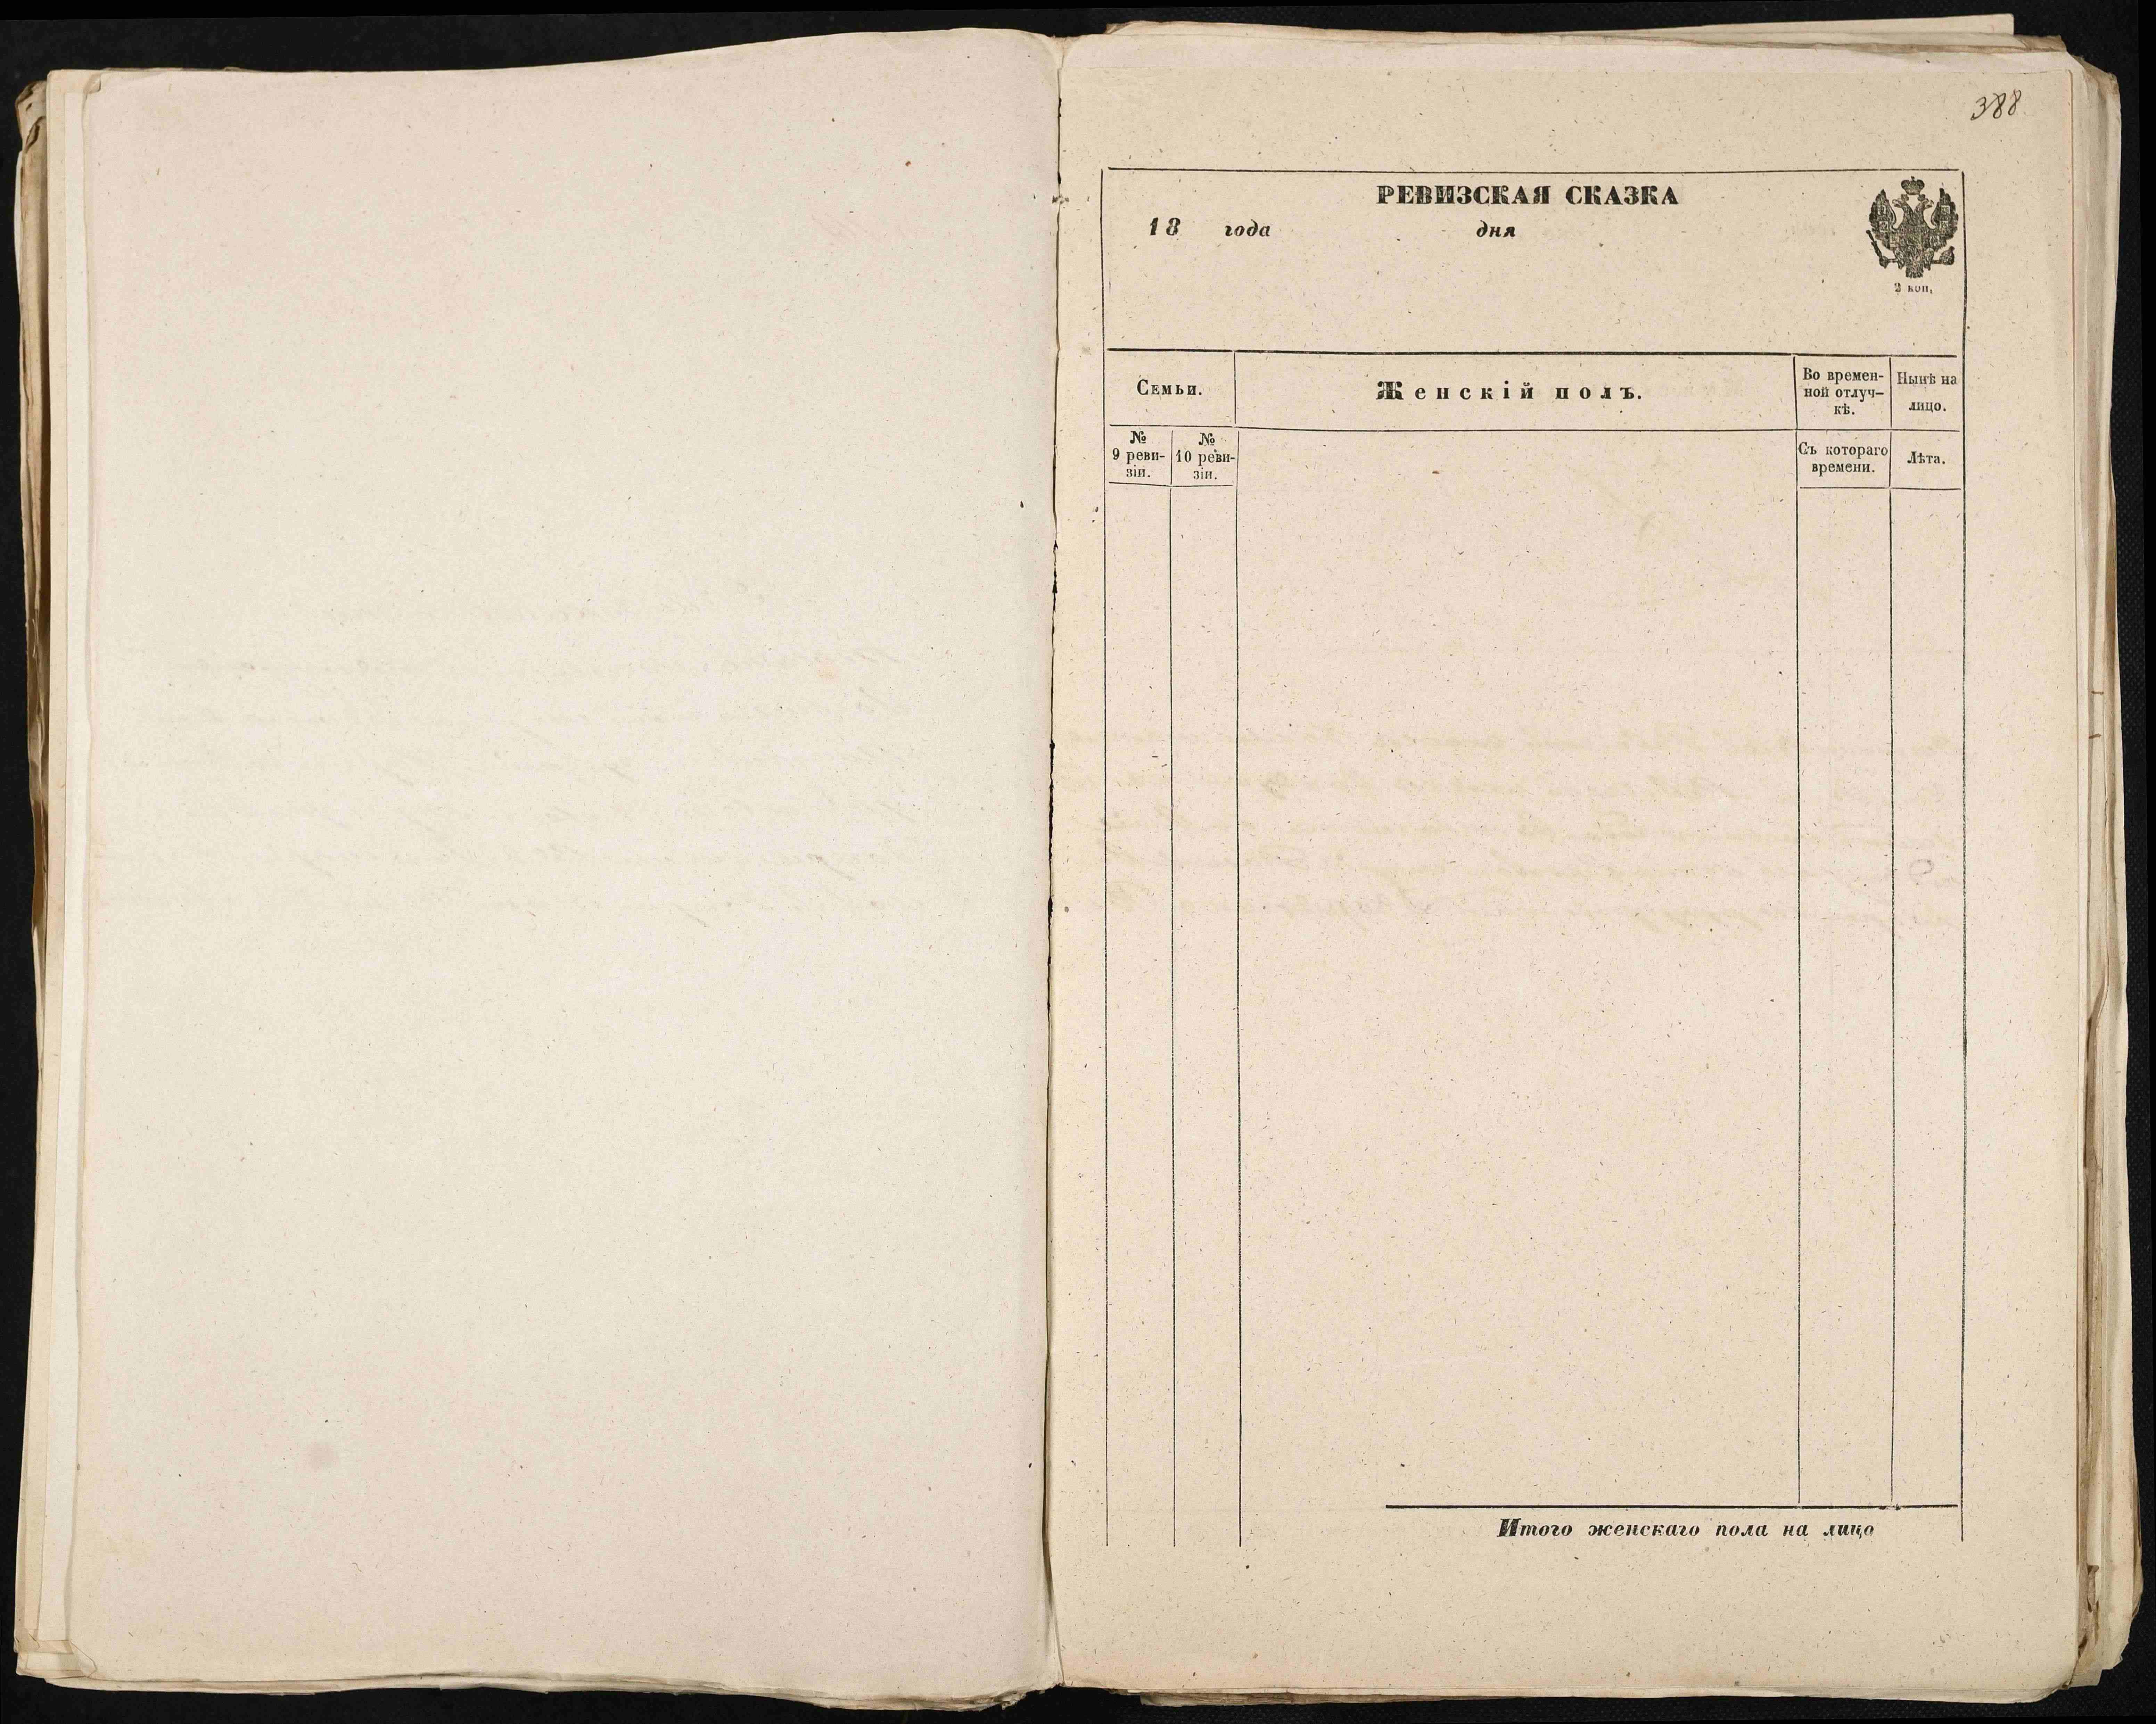 388
РЕВИЗСКАЯ СКАЗКА
18 года дня
2 коп.
Семьи.
Женскій полъ.
Во времен-
ной отлуч-
кѣ.
Нынѣ на
лицо.
№
9 реви-
зіи.
№
10 реви-
зіи.
Съ котораго
времени.
Лѣта.
Итого женскаго пола на лицо